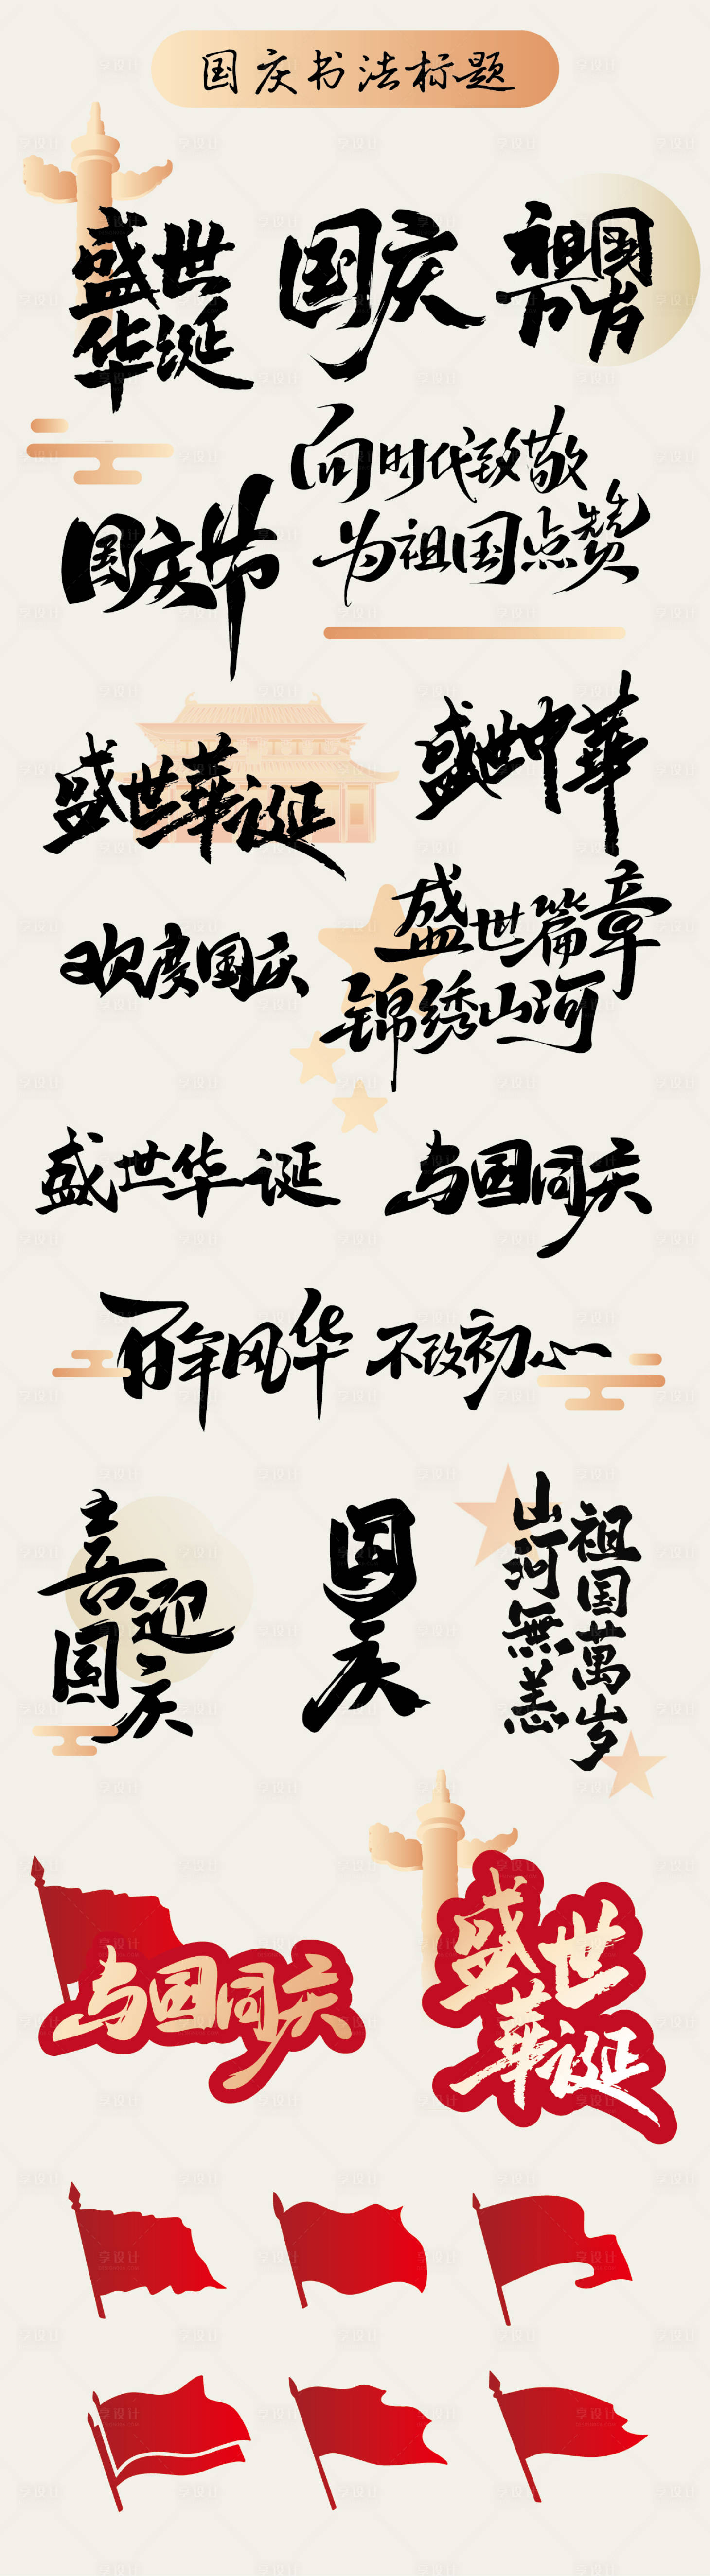 国庆书法标题
盛世
华诞
国庆
祖国
万岁
向时代致敬
为祖国点赞
国庆节
盛世華诞
盛世中華
欢度国庆
盛世篇章
锦绣山河
盛世华诞
与国同庆
百年风华 不改初心
喜迎
国庆
国庆
祖国萬岁
山河無恙
与国同庆
盛世
華诞